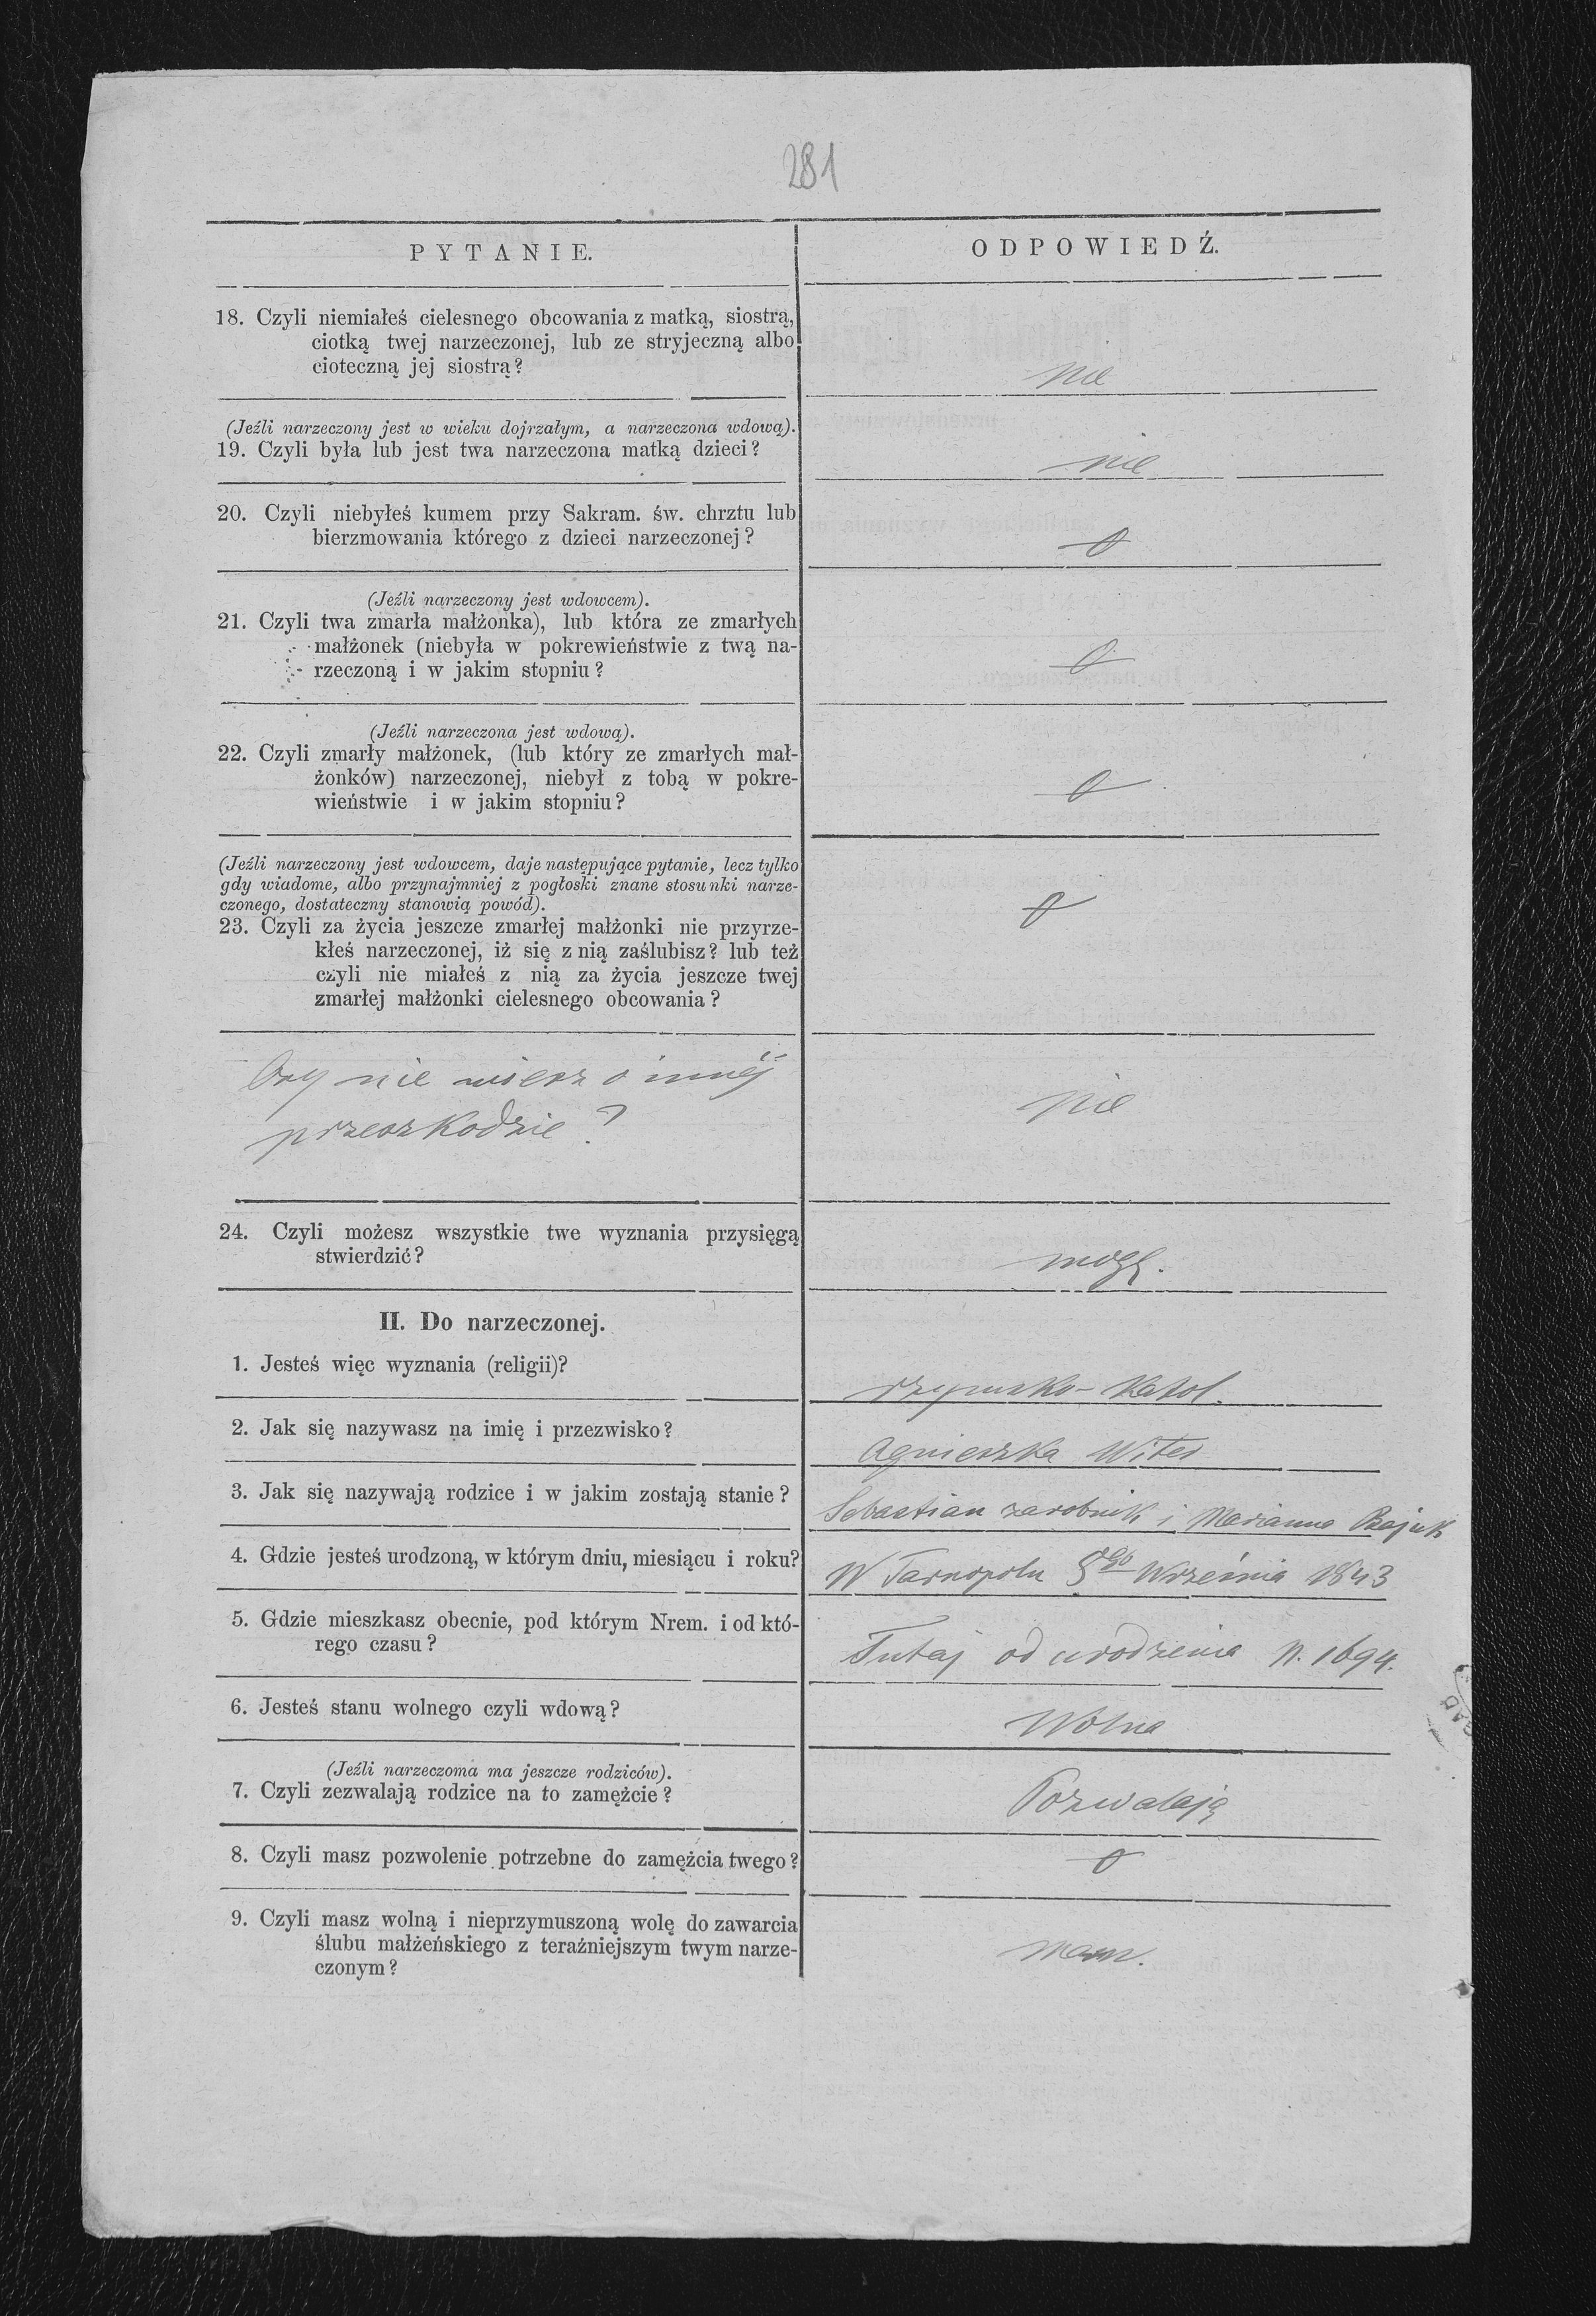 281
PYTANIE.
ODPOWIEDŹ.
18. Czyli niemiałeś cielesnego obcowania z matką, siostrą,
ciotką twej narzeczonej, lub ze stryjeczną albo
cioteczną jej siostrą?
nie
(Jeźli narzeczony jest w wieku dojrzałym, a narzeczona wdową).
19. Czyli była lub jest twa narzeczona matką dzieci?
nie
20. Czyli niebyłeś kumem przy Sakram. św. chrztu lub
bierzmowania którego z dzieci narzeczonej?
0
(Jeźli narzeczony jest wdowcem).
21. Czyli twa zmarła małżonka), lub która ze zmarłych
małżonek (niebyła w pokrewieństwie z twą na-
rzeczoną i w jakim stopniu?
0
(Jeźli narzeczona jest wdową).
22. Czyli zmarły małżonek, (lub który ze zmarłych mał-
żonków) narzeczonej, niebył z tobą w pokre-
wieństwie i w jakim stopniu?
0
(Jeźli narzeczony jest wdowcem, daje następujące pytanie, lecz tylko
gdy wiadome, albo przynajmniej z pogłoski znane stosunki narze-
czonego, dostateczny stanowią powód).
23. Czyli za życia jeszcze zmarłej małżonki nie przyrze-
kłeś narzeczonej, iż się z nią zaślubisz? lub też
czyli nie miałeś z nią za życia jeszcze twej
zmarłej małżonki cielesnego obcowania?
0
Czy nie wiesz o innéj
przeszkodzie?
nie
24. Czyli możesz wszystkie twe wyznania przysięgą
stwierdzić?
mogę.
II. Do narzeczonej.
1. Jesteś więc wyznania (religii)?
rzymsko-katol.
2. Jak się nazywasz na imię i przezwisko?
Agnieszka
3. Jak się nazywają rodzice i w jakim zostają stanie?
Sebastian zarobnik i Marianna
4. Gdzie jesteś urodzoną, w którym dniu, miesiącu i roku?
W Tarnopolu 5go Września 1843
5. Gdzie mieszkasz obecnie, pod którym Nrem. i od któ-
rego czasu?
Tutaj od urodzenia N. 1694.
6. Jesteś stanu wolnego czyli wdową?
Wolna
(Jeźli narzeczoma ma jeszcze rodziców).
7. Czyli zezwalają rodzice na to zamężcie?
Pozwalają
8. Czyli masz pozwolenie potrzebne do zamężcia twego?
0
9. Czyli masz wolną i nieprzymuszoną wolę do zawarcia
ślubu małżeńskiego z teraźniejszym twym narze-
czonym?
mam.